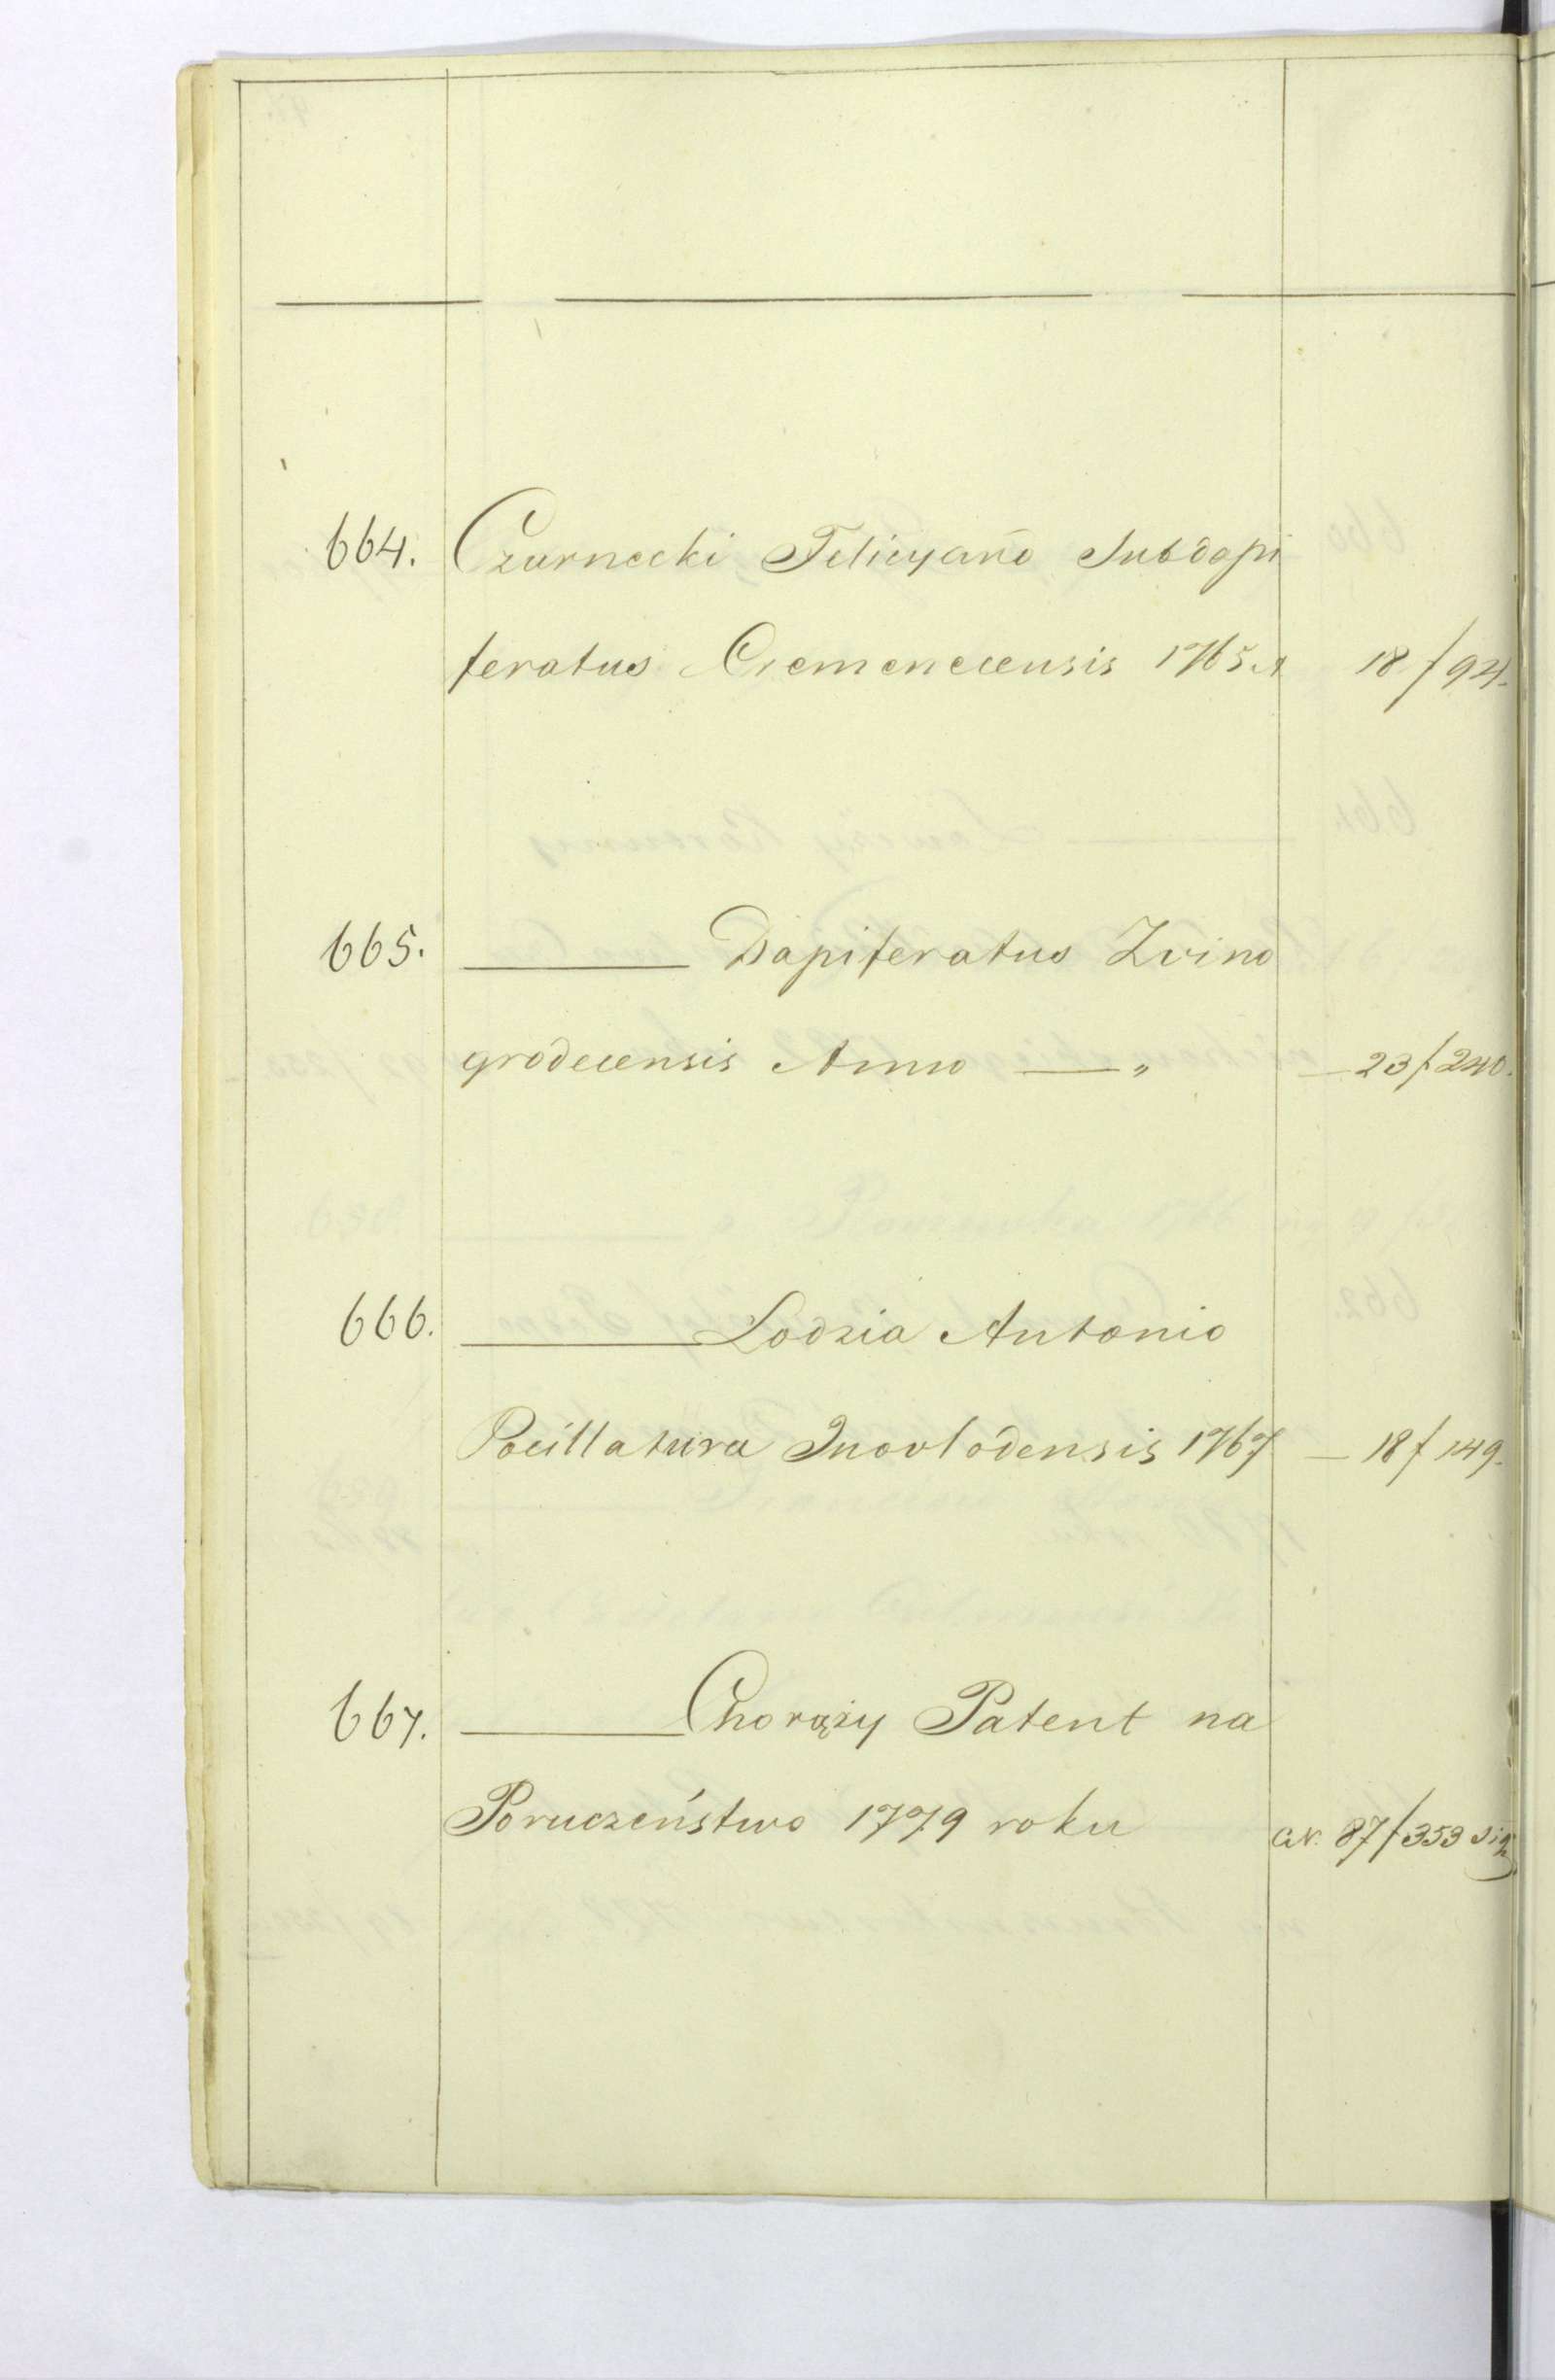 664. Czarnecki Felicyano Subdapi
feratus Cremenecensis 1765 A 18/94.
665. ——— Dapiferatus Zvino
grodecensis Anno —— „ — 23/240.
666. ——— Lodzia Antonio
Pocillatura Inovlodensis 1767 — 18/149.
667. ——— Chorąży Patent na
Poruczeństwo 1779 roku 87/353 sig